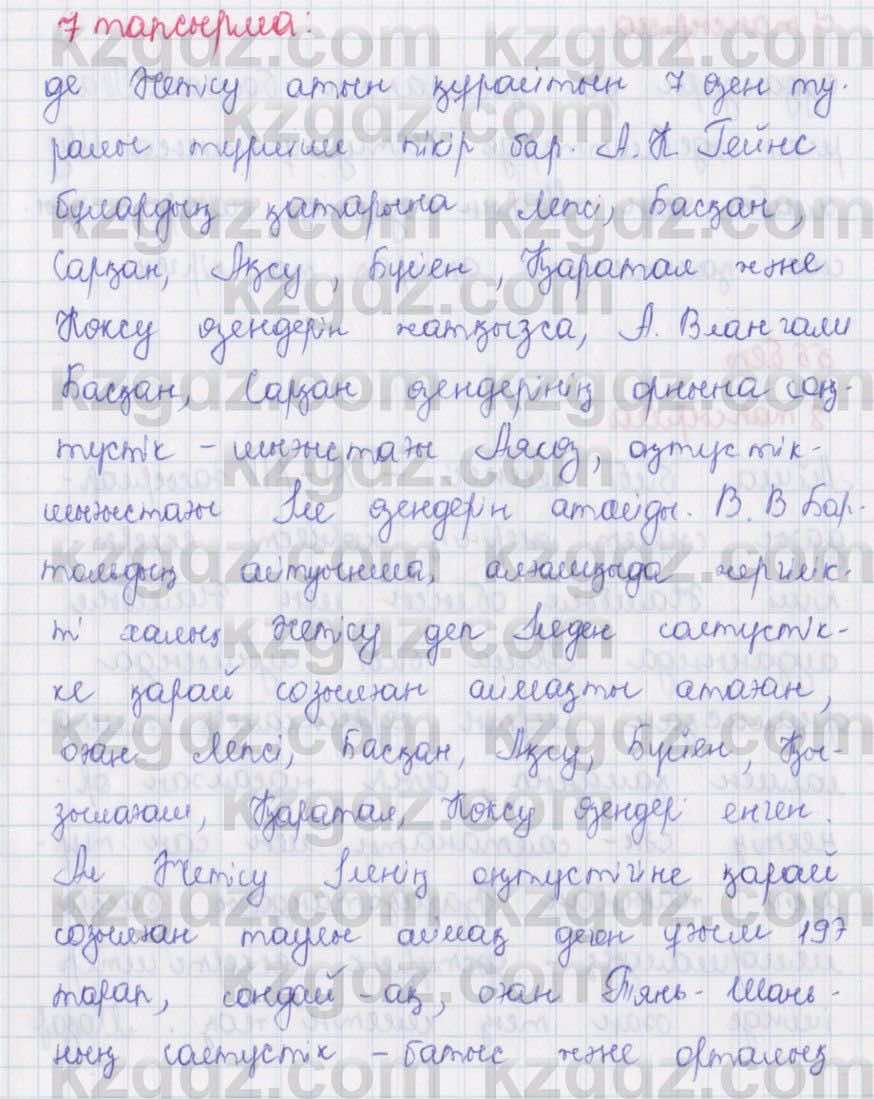 7 тапсырма:
де Жетісу атын құрайтын 7 өзен ту-
ралы түрліше пікір бар. А.К Гейнс
бұлардың қатарына Лепсі, Басқан,
Сарқан, Ақсу, Бүйен, Қаратал және
Көксу өзендерін жатқызса, А. Влангали
Басқан, Сарқан өзендерінің орнына сол-
түстік - шығыстағы Аягөз, оңтүстік-
шығыстағы Іле өзендерін атайды. В.В Бар-
тольдың айтуынша, алғашқыда жергілік-
ті халық Жетісу деп Іледен солтүстік-
ке қарай созылған аймақты атаған,
оған Лепсі, Басқан, Ақсу, Бүйен, Қы-
зылағаш, Қаратал, Көксу өзендері енген.
Ал Жетісу Іленің оңтүстігіне қарай
созылған таулы аймақ деген ұғым 197
тарап, сондай-ақ, оған Тянь-Шань-
ның солтүстік - батыс және орталық
kzgdz.com